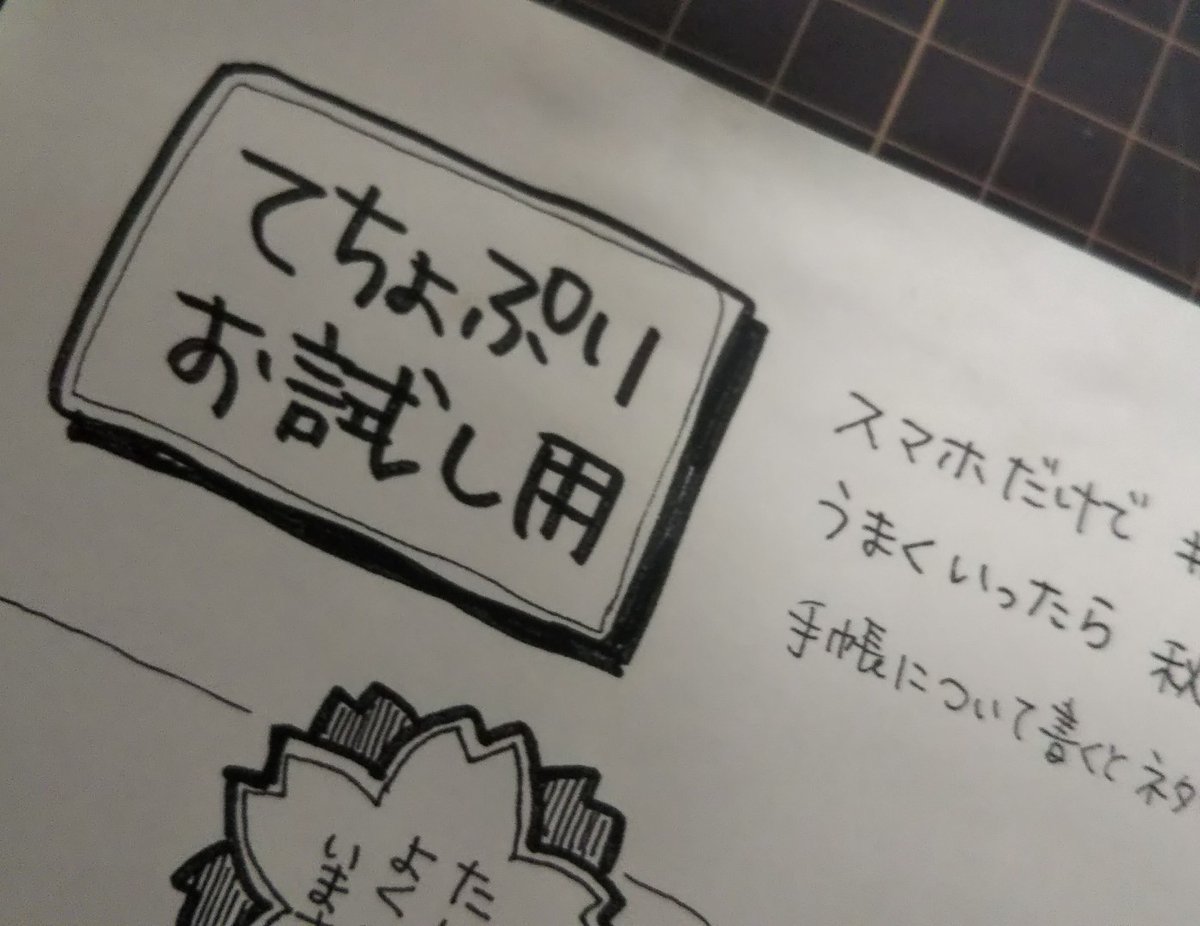 てちょぷり
お試し用
スマホだけで
うまくいったら 秋
手帳について書くとネタ